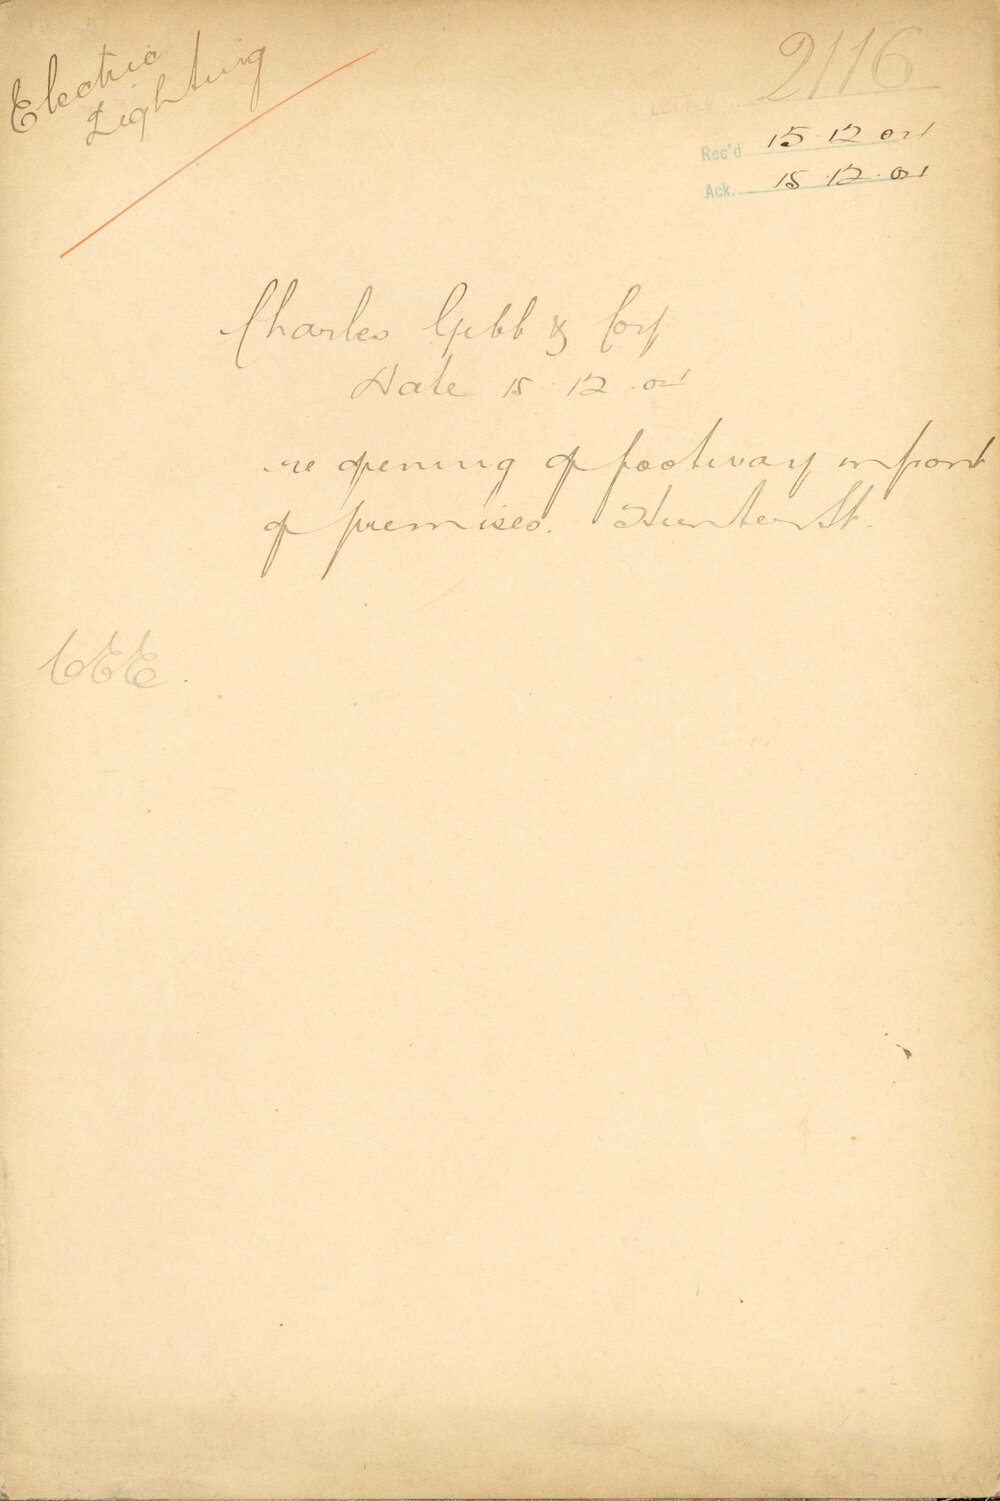 Electric
Lighting
2116
Rec'd 15.12.04
Ack. 15.12.04
Charles Gibb & Coy
Date 15.12.04
re opening of footway in front
of premises. Hunter St.
CEE.